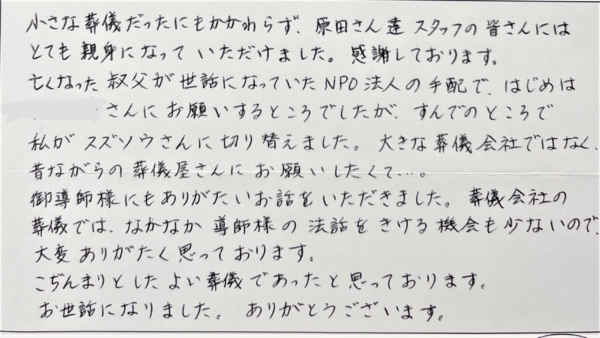 小さな葬儀だったにもかかわらず、原田さん達スタッフの皆さんには
とても親身になっていただけました。感謝しております。
亡くなった叔父が世話になっていたNPO法人の手配で、はじめは
さんにお願いするところでしたが、すんでのところで
私がスズソウさんに切り替えました。大きな葬儀会社ではなく、
昔ながらの葬儀屋さんにお願いしたくて…。
御導師様にもありがたいお話をいただきました。葬儀会社の
葬儀では、なかなか導師様の法話をきける機会も少ないので、
大変ありがたく思っております。
こぢんまりとしたよい葬儀であったと思っております。
お世話になりました。ありがとうございます。